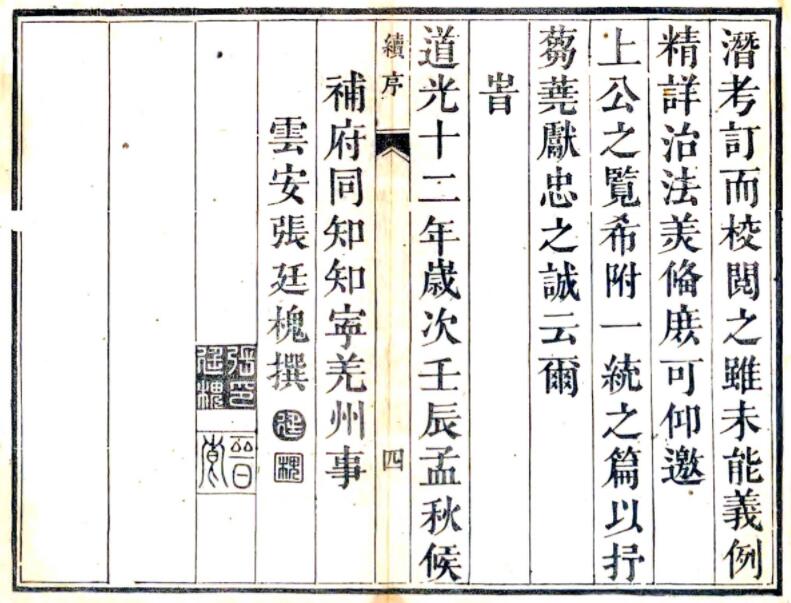 潛考訂而校閱之雖未能義例
精詳治法美俻庶可仰邀
上公之覽希附一統之篇以抒
蒭蕘獻忠之誠云爾
旹
道光十二年歲次壬辰孟秋候
續序
四
補府同知知寧羌州事
雲安張廷槐撰
廷
槐
張印廷槐